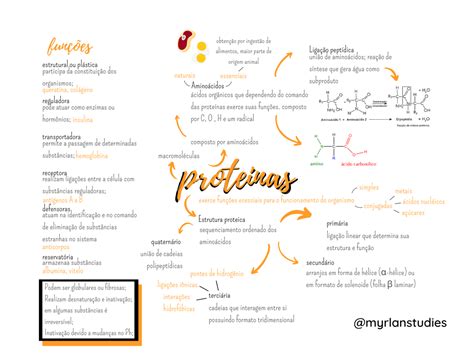 funções
estrutural ou plástica
participa da constituição dos
organismos;
queratina, colágeno
reguladora
pode atuar como enzimas ou
hormônios; insulina
transportadora
permite a passagem de determinadas
substâncias; hemoglobina
receptora
realizam ligações entre a célula com
substâncias reguladoras;
antígenos A e B
defensoras,
atuam na identificação e no comando
de eliminação de substâncias
estranhas no sistema
anticorpos
reservatória
armazenam substâncias
albumina, vitelo
Podem ser globulares ou fibrosas;
Realizam desnaturação e inativação;
em algumas substâncias é
irreversível;
Inativação devido a mudanças no Ph;
obtenção por ingestão de
alimentos, maior parte de
origem animal
naturais
essenciais
Aminoácidos
ácidos orgânicos que dependendo do comando
das proteínas exerce suas funções. composto
por C, O , H e um radical
composto por aminoácidos
macromoléculas
Ligação peptídica
união de aminoácidos; reação de
síntese que gera água como
subproduto
amina
ácido carboxílico
proteínas
exerce funções essenciais para o funcionamento do organismo
simples
conjugadas
metais
ácidos nucleicos
açúcares
Estrutura proteica
sequenciamento ordenado dos
aminoácido
primária
ligação comum que determina sua
estrutura e função
secundário
arranjos em forma de hélice (α-hélice) ou
em formato de solenoide (folha β laminar)
terciária
cadeias que interagem entre si
possuindo formato tridimensional
pontes de hidrogênio
ligações iônicas
interações
hidrofóbicas
quaternário
união de cadeias
polipeptídicas
@myrlanstudies